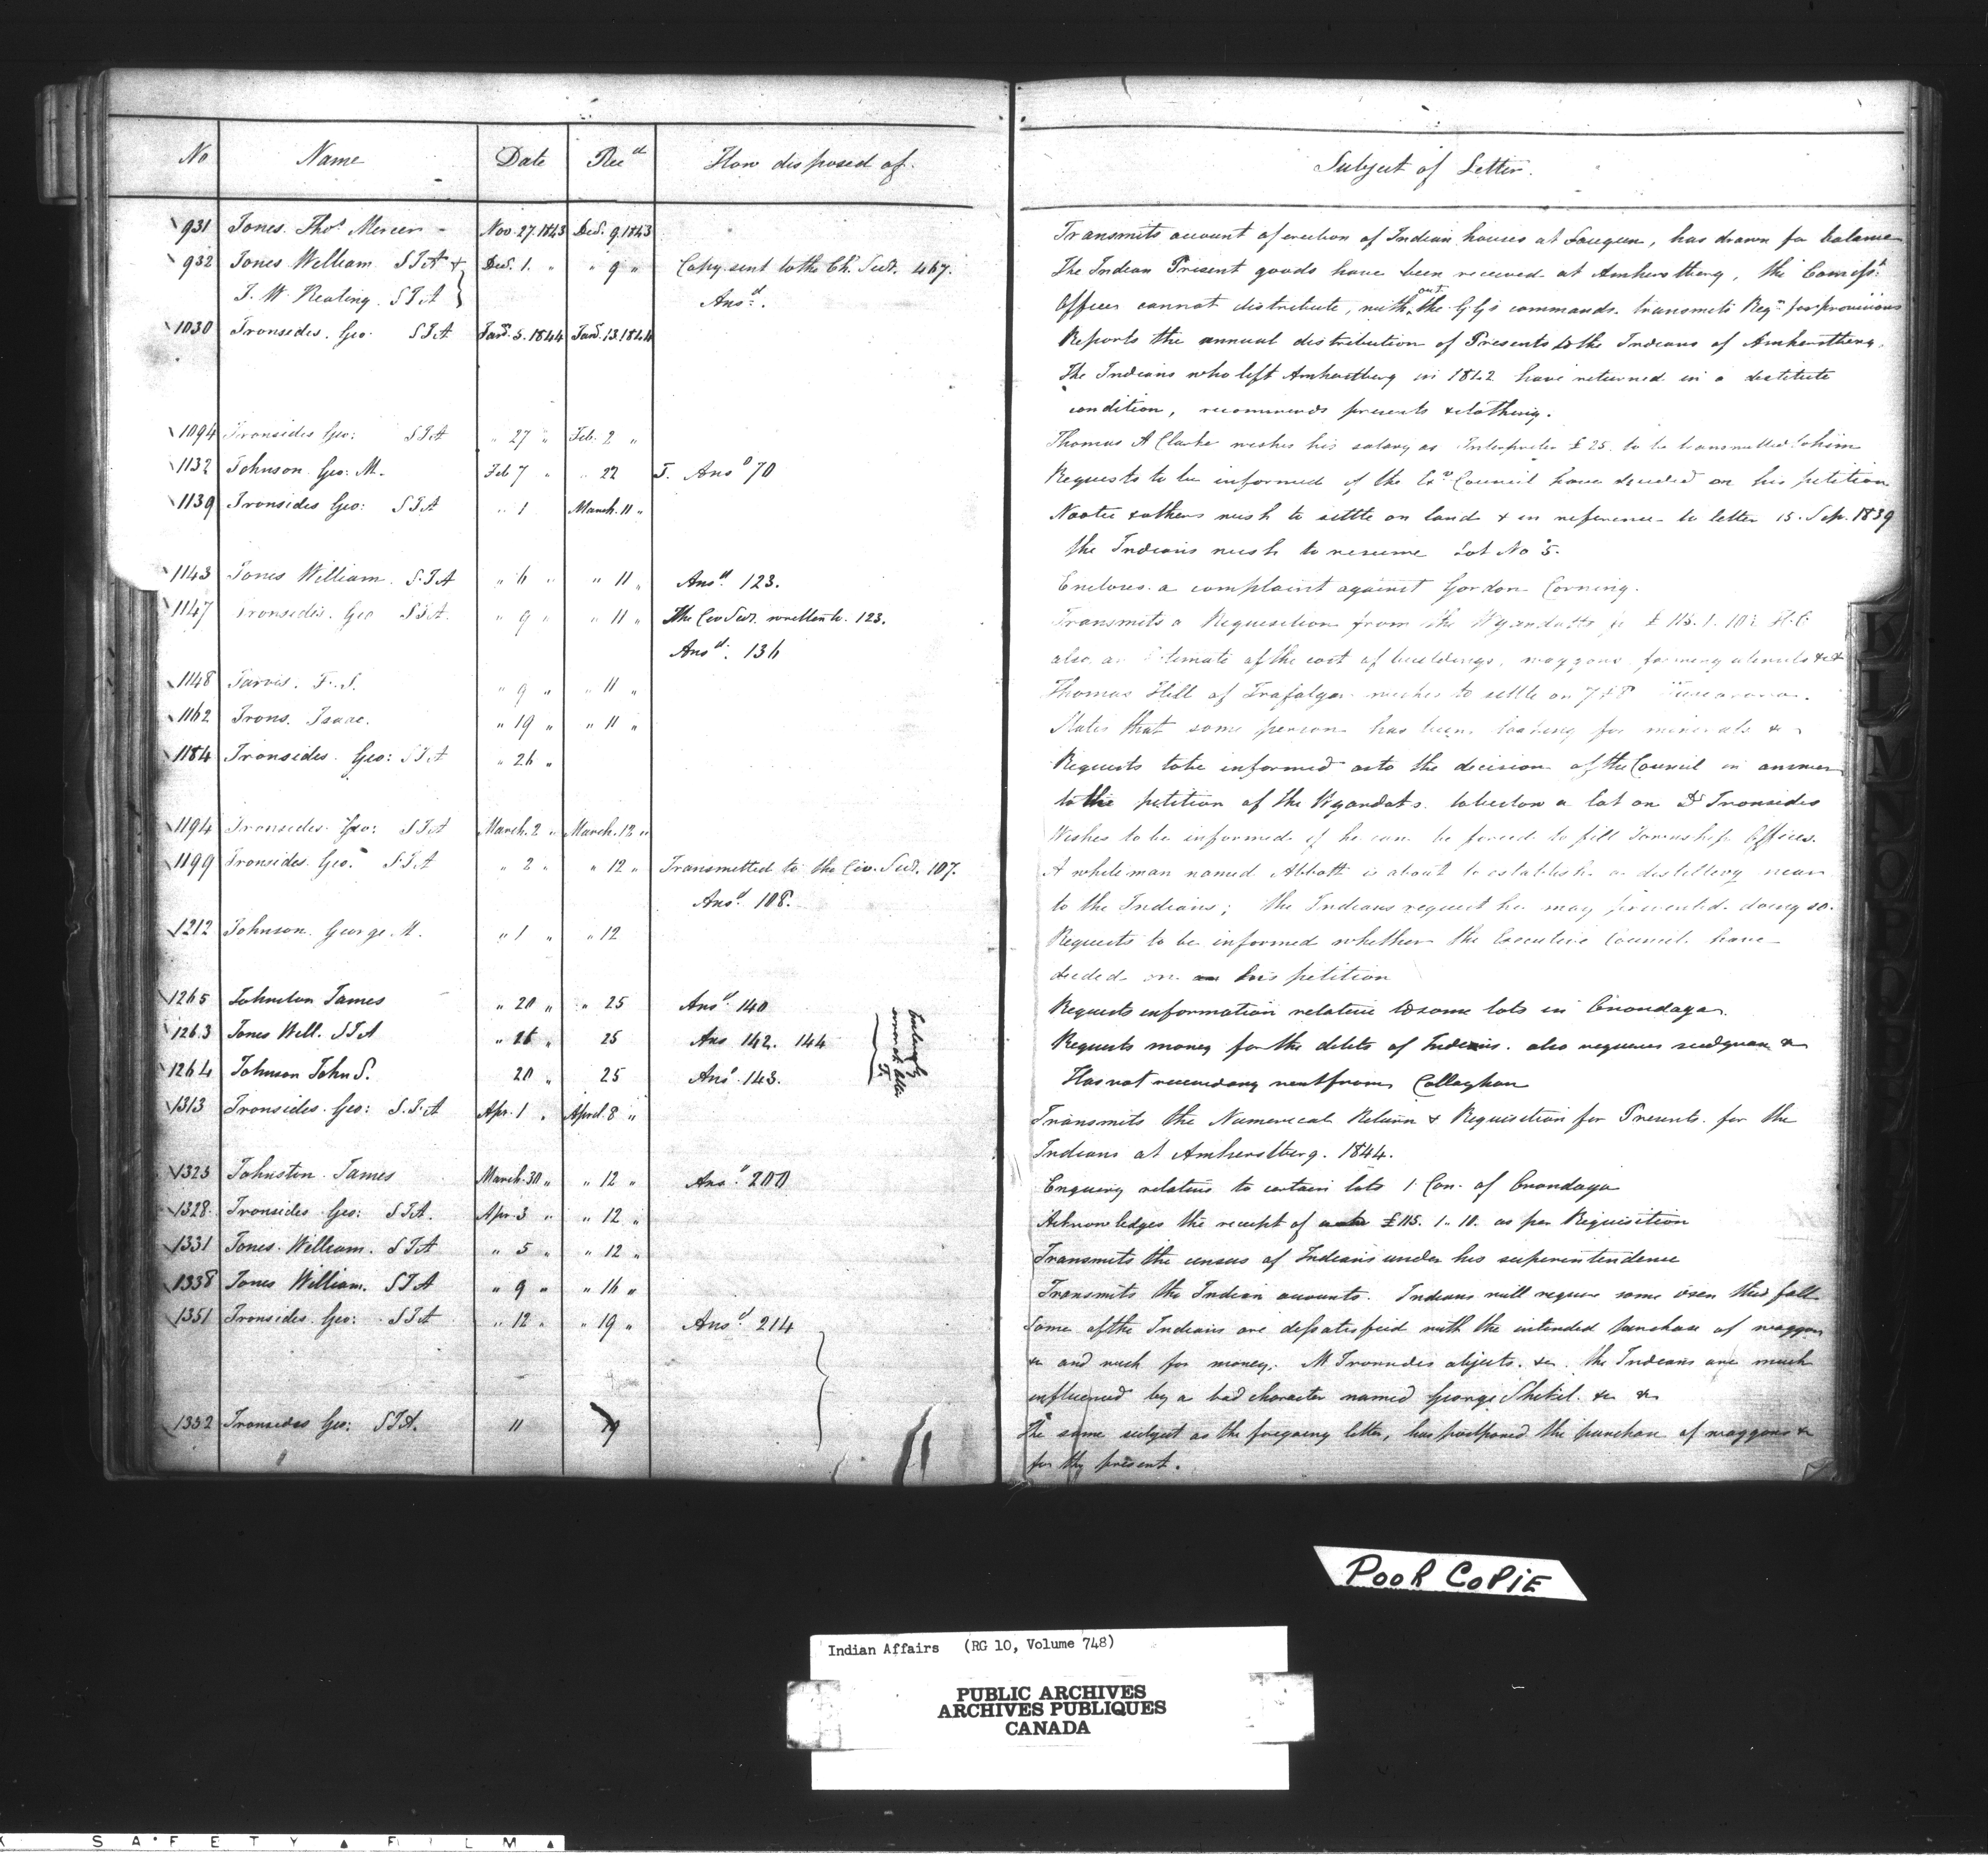 No Name Date Rec^d How disposed of.
Subject of Letter.
931 Jones. Tho^s Mercer Nov. 27. 1843 Dec^r. 9. 1843
Transmits account of erection of Indian houses at Saugeen, has drawn for balance
932 Jones William S I A & Dec^r. 1. " " 9 " Copy sent to the Ch. Secr^y. 467.
The Indian Present goods have been received at Amherstberg, the Commiss^t
J. W. Keating. S I A Ans^d.
Officer cannot distribute, without the G G's commands. transmits Req^n for provisions
1030 Ironsides. Geo. S I A Jan^y. 5. 1844 Jan^y. 13. 1844
Reports the annual distribution of Presents to the Indians of Amherstberg.
The Indians who left Amherstberg in 1842 have returned in a destitute
condition, recommends presents & clothing.
1094 Ironsides Geo: S I A " 27 " Feb. 2 "
Thomas A Clarke wishes his salary as Interpreter £25. to be transmitted to him
1132 Johnson. Geo: M. Feb 7 " " 22 J. Ans^d 70
Requests to be informed if the Ex^e Council have decided on his petition
1139 Ironsides Geo: S I A " 1 March. 11 "
& others wish to settle on land & in reference to letter 15. Sep. 1839
the Indians wish to resume Lot No 5.
1143 Jones William. S. I A " 6 " " 11 " Ans^d. 123.
Encloses a complaint against Gordon Corning.
1147 Ironsides. Geo S I A. " 9 " " 11 " The Civ Secr^y. written to. 123.
Transmits a Requisition from the Wyandotts for £ 115. 1. 10½ H. C.
Ans^d. 136
also an Estimate of the cost of buildings, waggons farming utensils &c &
1148 Jarvis. F. S. " 9 " " 11 "
Thomas Hill of Trafalgar wishes to settle on 7 & 8 Tuscarora.
1162 Irons. Isaac. " 19 " " 11 "
States that some person has been looking for minerals &
1184 Ironsides. Geo: S I A " 26 "
Requests to be informed as to the decision of the Council in answer
to the petition of the Wyandots. to bestow a lot on D^r Ironsides
1194 Ironsides. Geo: S I A March. 2 " March. 12 "
Wishes to be informed if he can be forced to fill Township Offices.
1199 Ironsides. Geo. S. I A " 2 " " 12 " Transmitted to the Civ. Secr^y. 107.
A white man named Abbott is about to establish a distillery near
Ans^d. 108.
to the Indians; the Indians request he may prevented doing so.
1212 Johnson. George. M. " 1 " " 12
Requests to be informed whether the Executive Council. have
decided on his petition
1265 Johnston James " 20 " " 25 Ans^d. 140
Requests information relative to some lots in Onondaga.
1263 Jones Will. S I A " 26 " 25 Ans. 142. 144
Requests money for the debts of Indians. also requires seed grain &
1264 Johnson John S. 20 " 25 Ans^d. 143.
Has not received any rent from Callaghan
1313 Ironsides. Geo: S. I. A Apr. 1 " April. 8 "
Transmits the Numerical Return & Requisition for Presents. for the
Indians at Amherstberg. 1844.
1323 Johnston. James March. 30 " " 12 " Ans^d. 200
Enquiry relative to certain lots 1 Con. of Onondaga
1328. Ironsides Geo: S I A. Apr. 3 " " 12 "
Acknowledges the receipt of £115. 1. 10. as per Requisition
1331 Jones. William. S I A " 5 " " 12 "
Transmits the census of Indians under his superintendence
1338 Jones William. S I A " 9 " " 16 "
Transmits the Indian accounts. Indians will require some oxen this fall
1351 Ironsides. Geo: S I A " 12 " " 19 " Ans^d. 214
Some of the Indians are dissatisfied with the intended purchase of waggons
&c and wish for money. M^r Ironsides objects. &c. the Indians are much
influenced by a bad character named George &c &c
1352 Ironsides Geo: S I A. 11 19
The same subject as the foregoing letter, has postponed the purchase of waggons &c
for the present.
K L M N O P Q R
POOR COPIE
Indian Affairs (RG 10, Volume 748)
PUBLIC ARCHIVES
ARCHIVES PUBLIQUES
CANADA
SAFETY FILM